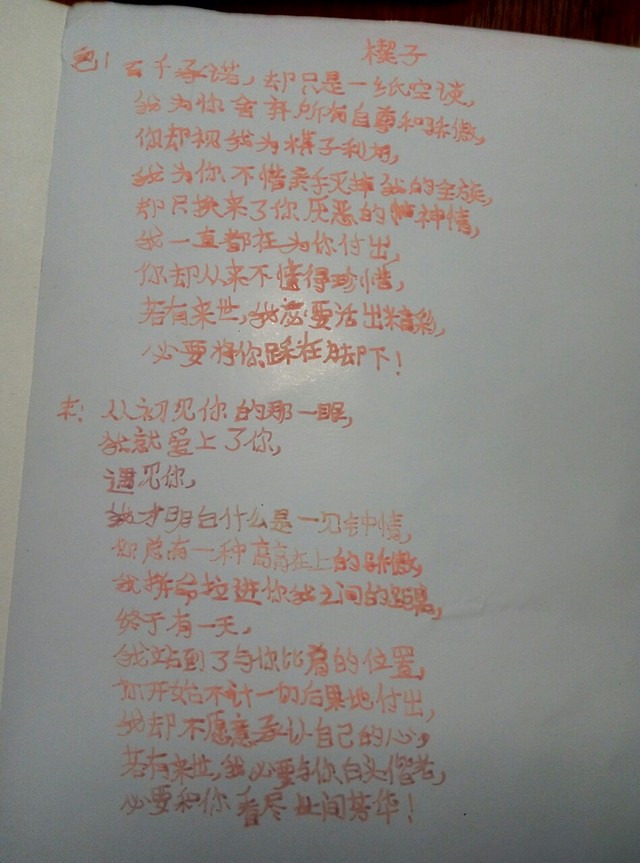 楔子
百千承诺，却只是一纸空谈，
我为你舍弃所有自尊和骄傲，
你却视我为棋子利用，
我为你不惜亲手灭掉我的全族，
却只换来了你厌恶的神情，
我一直都在为你付出，
你却从来不懂得珍惜，
若有来世，我要活出精彩，
必要将你踩在脚下！
从初见你的那一眼，
我就爱上了你，
遇见你，
我才明白什么是一见钟情，
你总有一种高高在上的骄傲，
我拼命拉进你我之间的距离，
终于有一天，
我站到了与你比肩的位置，
你开始不计一切后果地付出，
我却不愿意承认自己的心，
若有来世，我必要与你白头偕老，
必要和你看尽世间芳华！